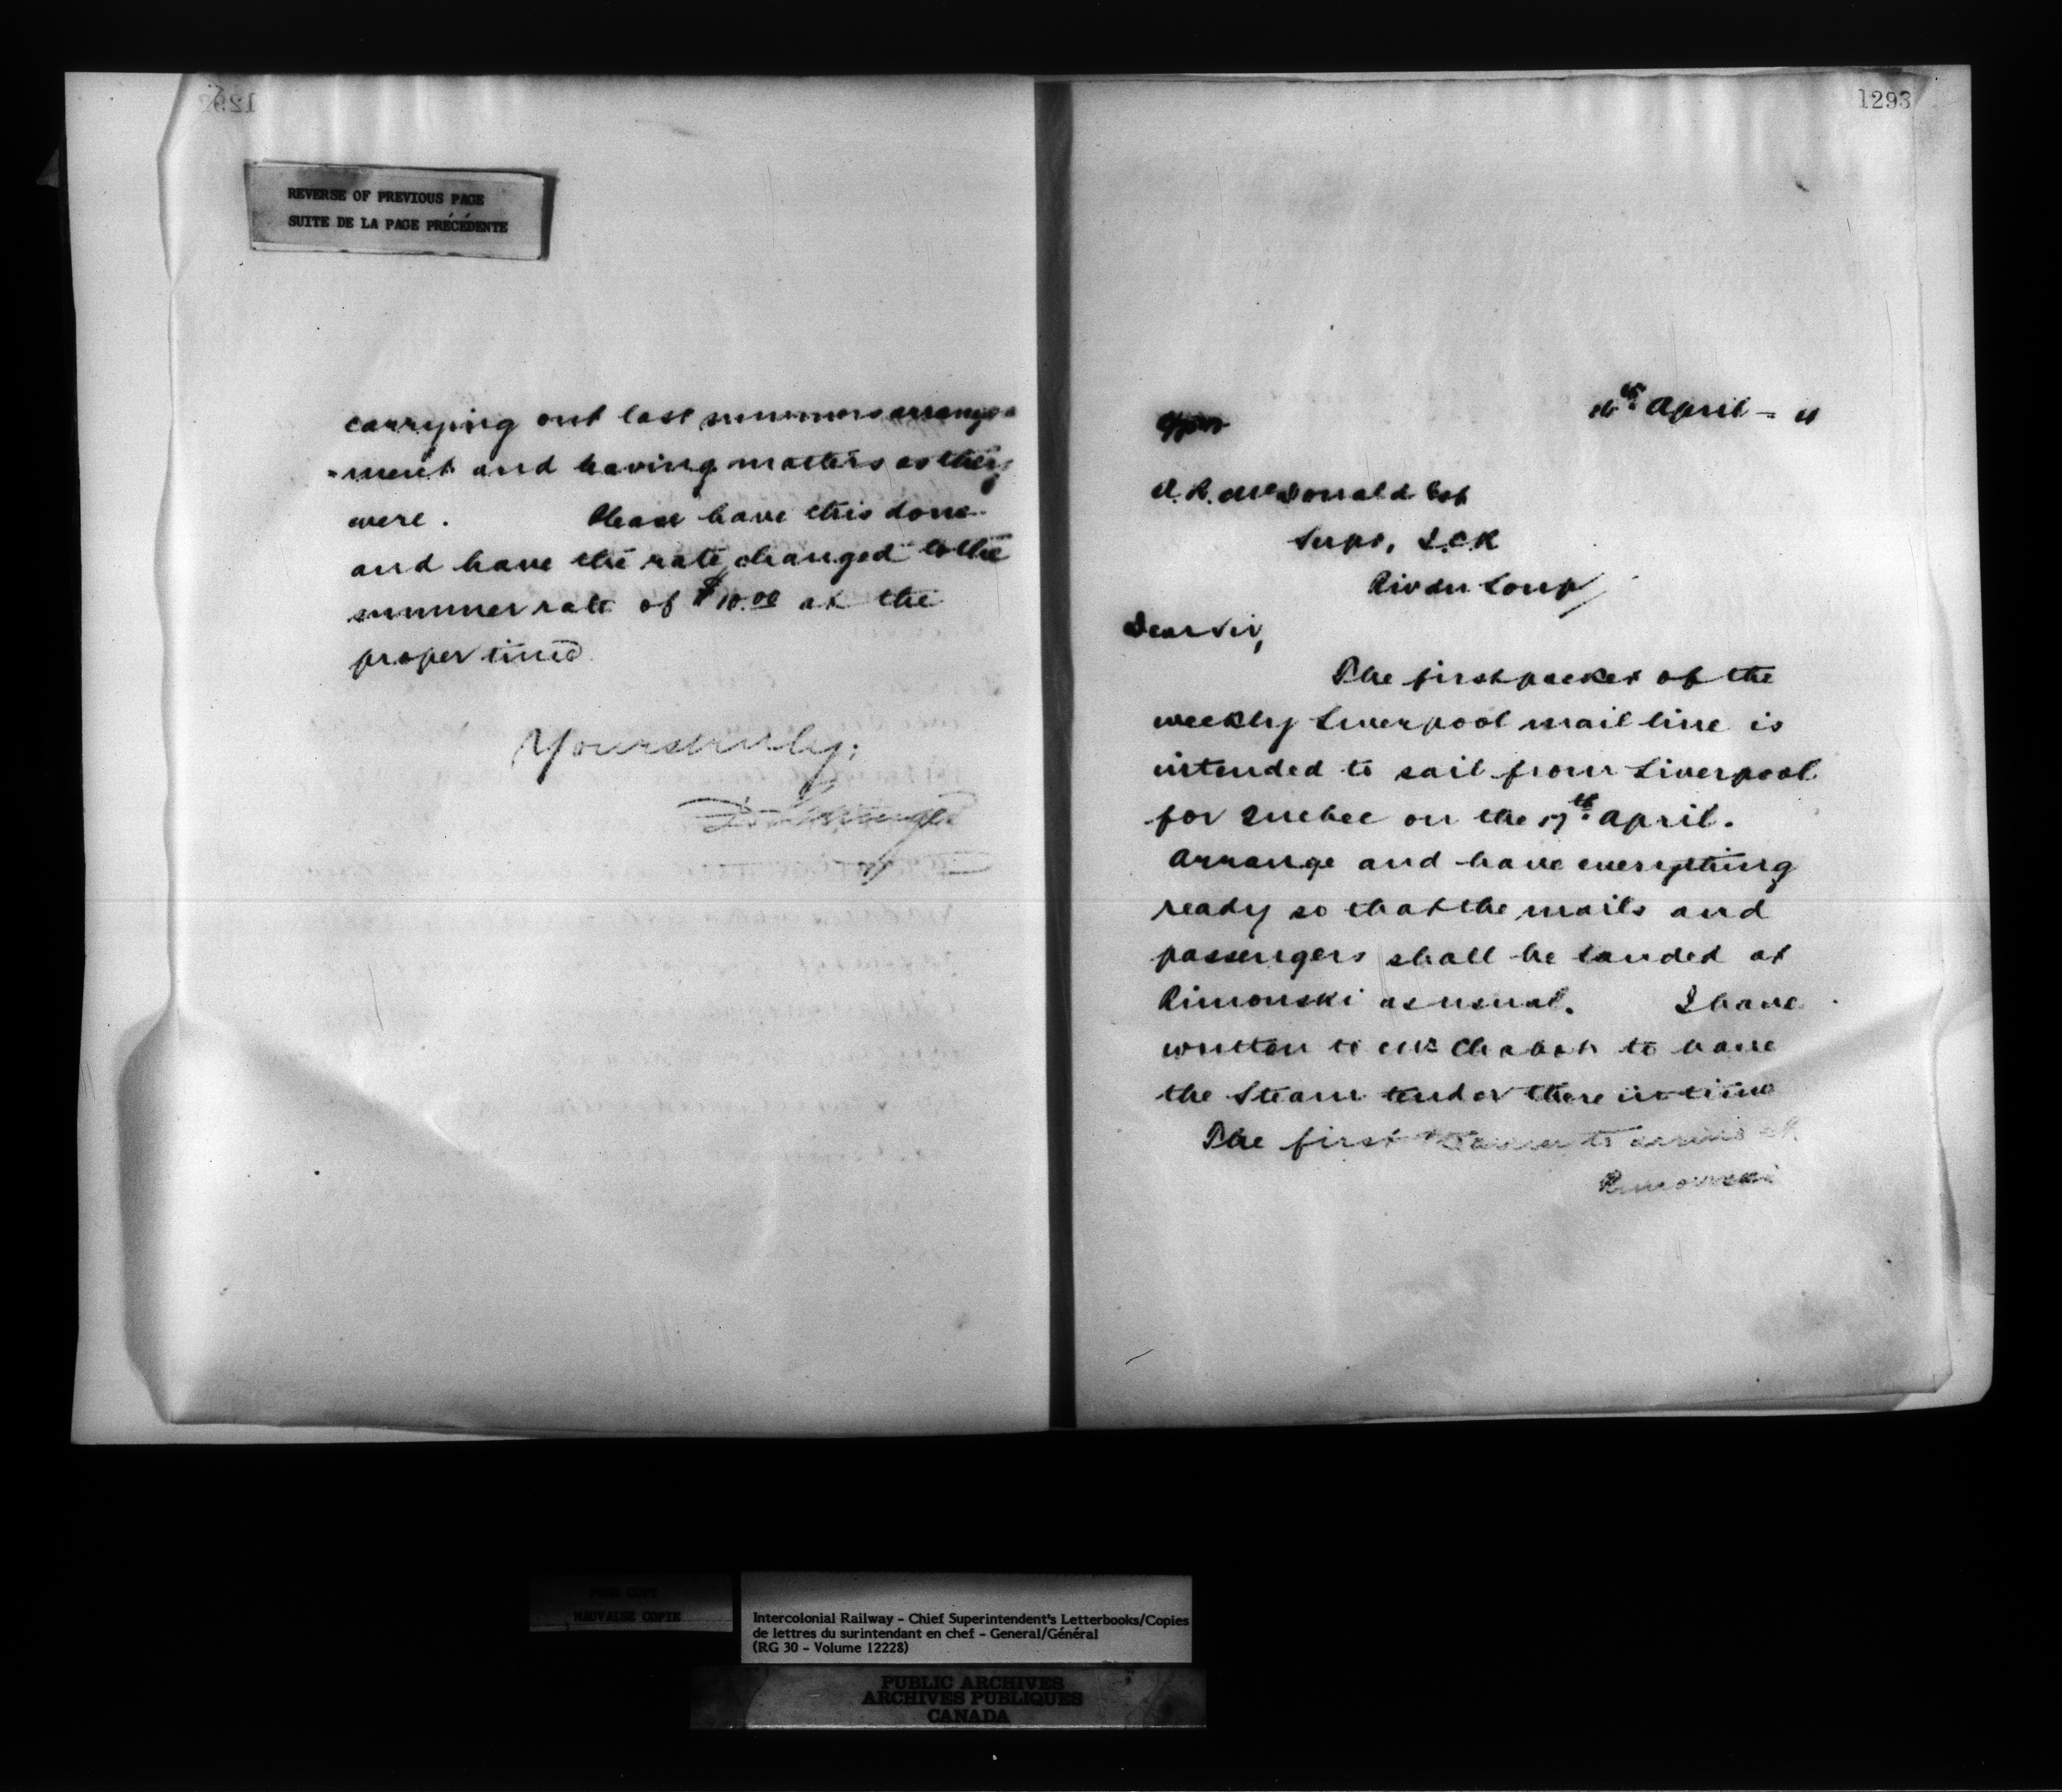 1292
REVERSE OF PREVIOUS PAGE
SUITE DE LA PAGE PRÉCÉDENTE
carrying out last summers arrange=
=ment and having matters as they
were. Please have this done
and have the rate changed to the
summer rate of $10.00 at the
proper time
Yours truly,
1293
April
A. R. McDonald Esq
Supt, I.C.R
Riv du Loup
Dear Sir,
The first packet of the
weekly Liverpool mail line is
intended to sail from Liverpool
for Quebec on the 17th April.
Arrange and have everything
ready so that the mails and
passengers shall be landed at
Rimouski as usual. I have
written to Mr Chabot to have
the Steam tender there in time
The first to arrive at
Rimouski
POOR COPY
MAUVAISE COPIE
Intercolonial Railway - Chief Superintendent's Letterbooks/Copies
de lettres du surintendant en chef - General/Général
(RG 30 - Volume 12228)
PUBLIC ARCHIVES
ARCHIVES PUBLIQUES
CANADA